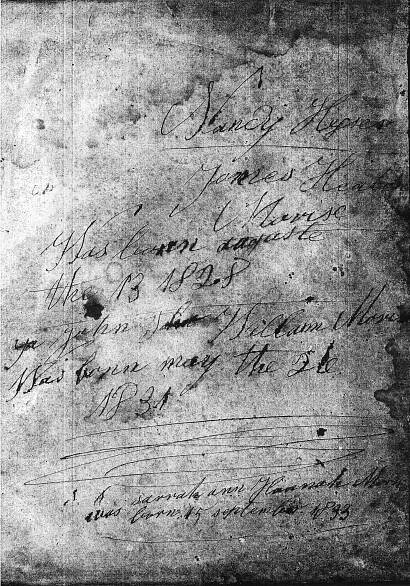 Nancy
James
Morise
Was born auguste
the 13 1828
John William Moris
Was born may the
1831
sarrah ann Hannah Moris
was born 15 september 1833